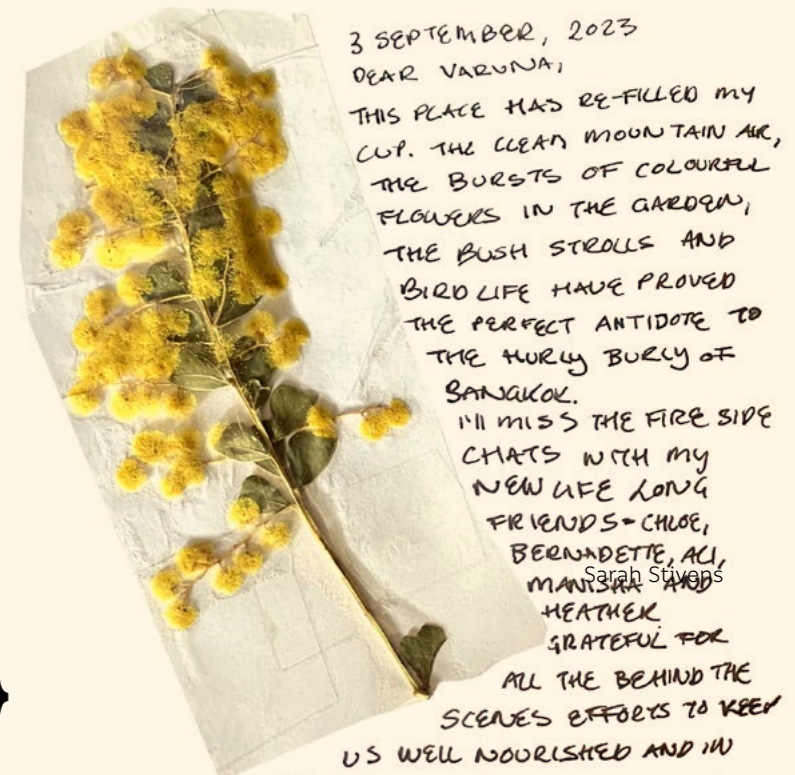 3 SEPTEMBER, 2023
DEAR VARUNA,
THIS PLACE HAS RE-FILLED MY
CUP. THE CLEAN MOUNTAIN AIR,
THE BURSTS OF COLOURFUL
FLOWERS IN THE GARDEN,
THE BUSH STROLLS AND
BIRD LIFE HAVE PROVED
THE PERFECT ANTIDOTE TO
THE HURLY BURLY OF
BANGKOK.
I'll MISS THE FIRE SIDE
CHATS WITH MY
NEW LIFE LONG
FRIENDS - CHLOE,
BERNADETTE, ALI,
Sarah Stivens
MANISHA AND
HEATHER
GRATEFUL FOR
ALL THE BEHIND THE
SCENES EFFORTS TO KEEP
US WELL NOURISHED AND IN